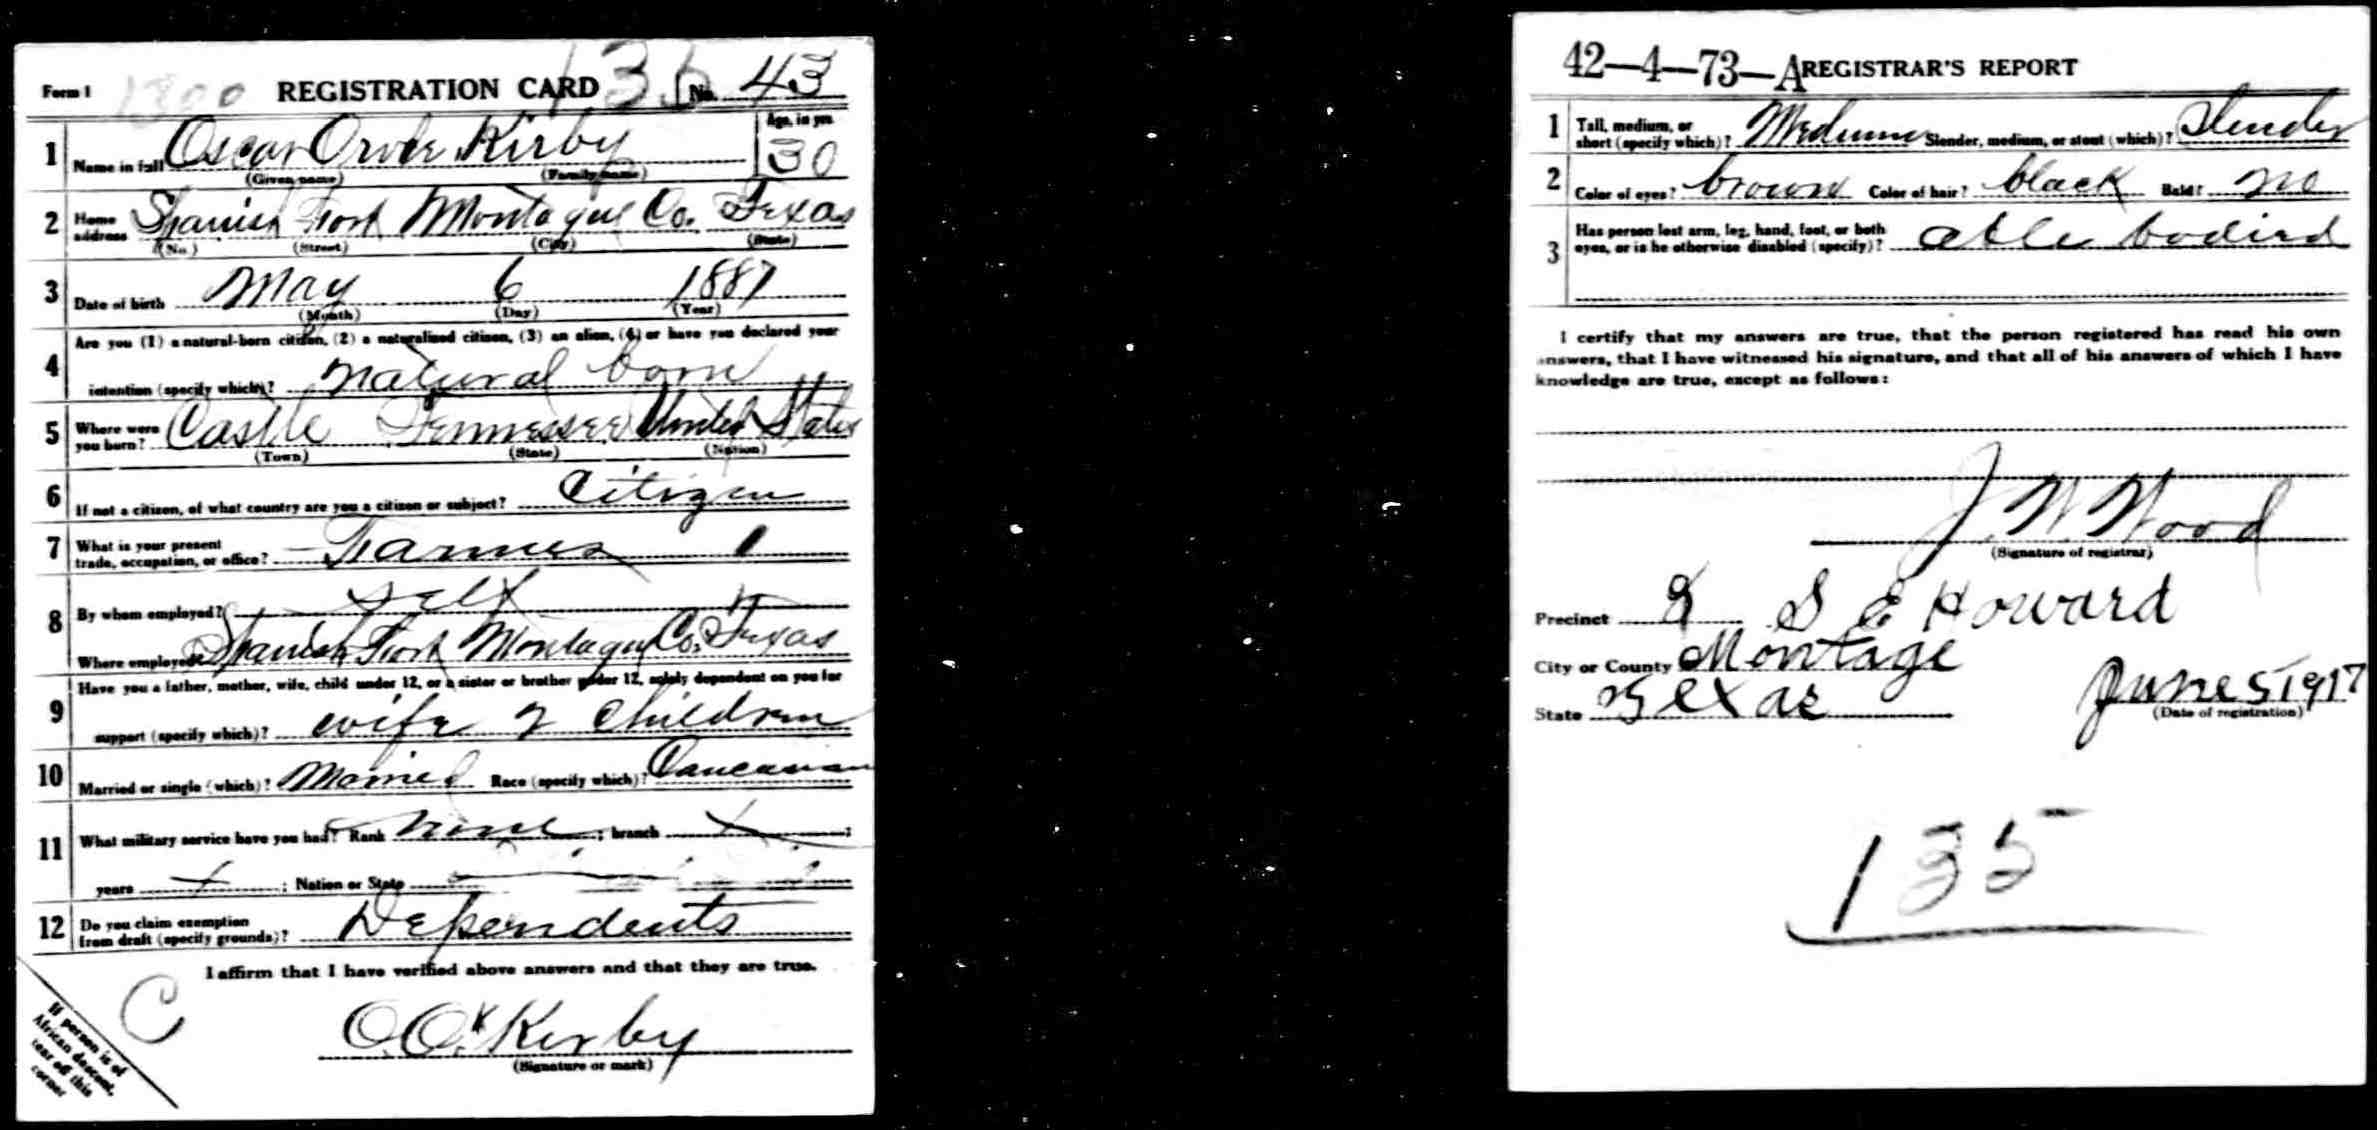 Form 1 1300 REGISTRATION CARD 135 No. 43
1 Name in full Oscar Orvle Kirby Age, in yrs. 30
(Given name) (Family name)
2 Home address Spanish Fort Montague Co. Texas
(No.) (Street) (City) (State)
3 Date of birth May 6 1887
(Month) (Day) (Year)
4 Are you (1) a natural-born citizen, (2) a naturalized citizen, (3) an alien, (4) or have you declared your
intention (specify which)? natural born
5 Where were you born? Castle Tennessee United States
(Town) (State) (Nation)
6 If not a citizen, of what country are you a citizen or subject? Citizen
7 What is your present
trade, occupation, or office? Farmer
8 By whom employed? self
Where employed? Spanish Fort Montague Co. Texas
9 Have you a father, mother, wife, child under 12, or a sister or brother under 12, solely dependent on you for
support (specify which)? wife 2 children
10 Married or single (which)? Married Race (specify which)? Caucasian
11 What military service have you had? Rank None ; branch x ;
years x ; Nation or State
12 Do you claim exemption
from draft (specify grounds)? Dependents
I affirm that I have verified above answers and that they are true.
C
O.O. Kirby
(Signature or mark)
If person is of
African descent,
tear off this
corner
42-4-73-A REGISTRAR'S REPORT
1 Tall, medium, or
short (specify which)? Medium Slender, medium, or stout (which)? Slender
2 Color of eyes? brown Color of hair? black Bald? no
3 Has person lost arm, leg, hand, foot, or both
eyes, or is he otherwise disabled (specify)? able bodied
I certify that my answers are true, that the person registered has read his own
answers, that I have witnessed his signature, and that all of his answers of which I have
knowledge are true, except as follows:
J. W. Wood
(Signature of registrar)
Precinct 8 S E Howard
City or County Montage
State Texas June 5 1917
(Date of registration)
135